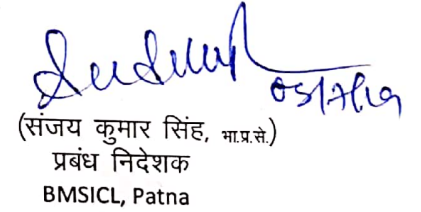 05/7/19
(संजय कुमार सिंह, भा.प्र.से.)
प्रबंध निदेशक
BMSICL, Patna